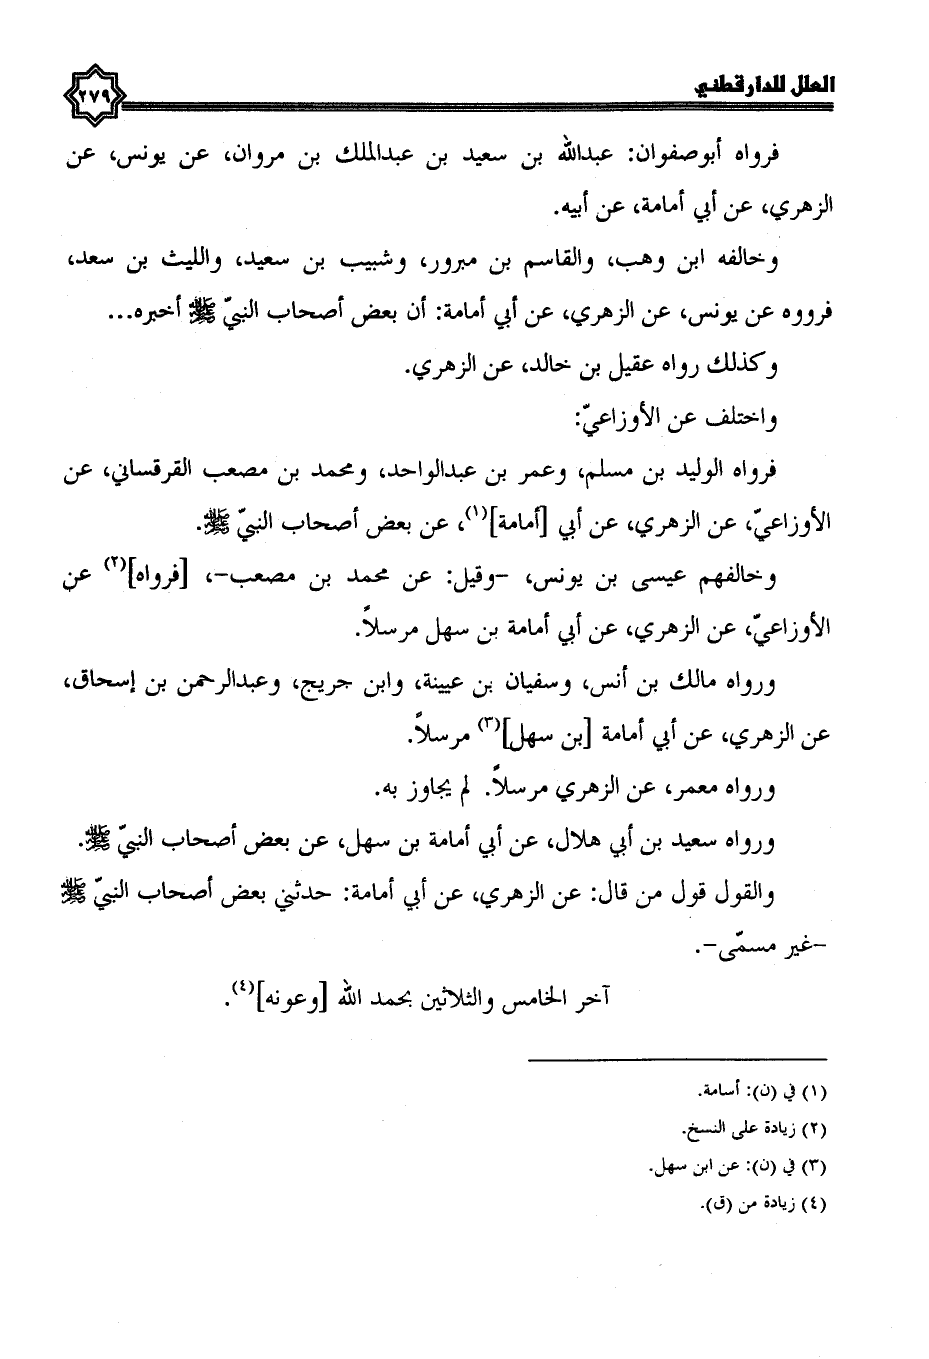 العلل للدارقطني
٢٧٩
فرواه أبوصفوان: عبدالله بن سعيد بن عبدالملك بن مروان، عن يونس، عن
الزهري، عن أبي أمامة، عن أبيه.
وخالفه ابن وهب، والقاسم بن مبرور، وشبيب بن سعيد، والليث بن سعد،
فرووه عن يونس، عن الزهري، عن أبي أمامة: أن بعض أصحاب النبيّ ﷺ أخبره...
وكذلك رواه عقيل بن خالد، عن الزهري.
واختلف عن الأوزاعيّ:
فرواه الوليد بن مسلم، وعمر بن عبدالواحد، ومحمد بن مصعب القرقساني، عن
الأوزاعيّ، عن الزهري، عن أبي [أمامة](١)، عن بعض أصحاب النبيّ ﷺ.
وخالفهم عيسى بن يونس، -وقيل: عن محمد بن مصعب-، [فرواه](٢) عن
الأوزاعيّ، عن الزهري، عن أبي أمامة بن سهل مرسلاً.
ورواه مالك بن أنس، وسفيان بن عيينة، وابن جريج، وعبدالرحمن بن إسحاق،
عن الزهري، عن أبي أمامة [بن سهل](٣) مرسلاً.
ورواه معمر، عن الزهري مرسلاً. لم يجاوز به.
ورواه سعيد بن أبي هلال، عن أبي أمامة بن سهل، عن بعض أصحاب النبيّ ﷺ.
والقول قول من قال: عن الزهري، عن أبي أمامة: حدثني بعض أصحاب النبيّ ﷺ
-غير مسمّى-.
آخر الخامس والثلاثين بحمد الله [وعونه](٤).
(١) في (ن): أسامة.
(٢) زيادة على النسخ.
(٣) في (ن): عن ابن سهل.
(٤) زيادة من (ق).